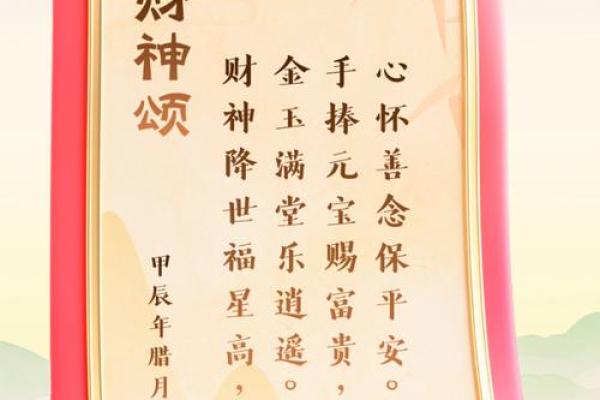 财神颂
财神降世福星高，
金玉满堂乐逍遥。
手捧元宝赐富贵，
心怀善念保平安。
甲辰年腊月